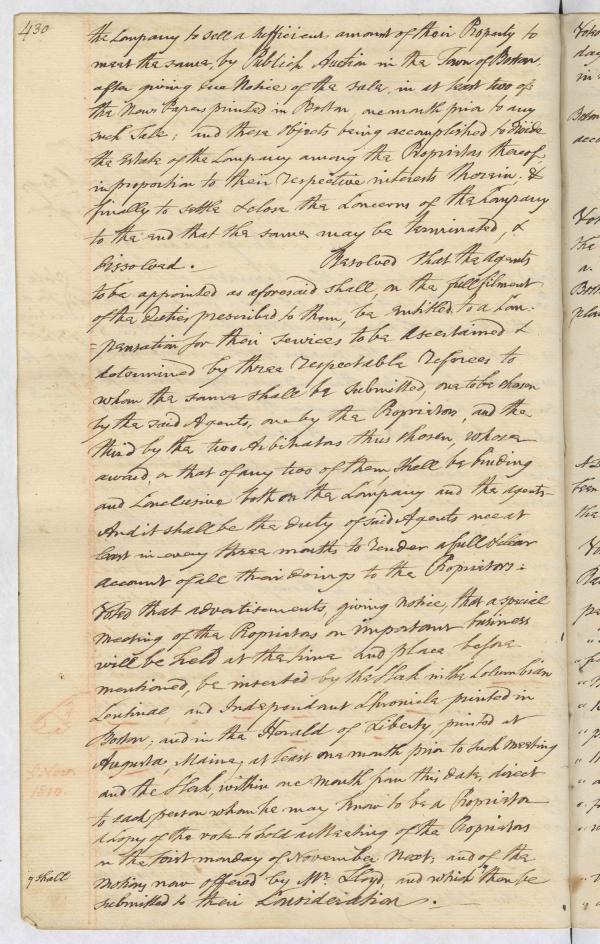 430
the Company to sell a sufficient amount of their Property to
meet the same, by Publick Auction in the Town of Boston,
after giving due Notice of the sale, in at least two of
the News Papers printed in Boston, one month prior to any
such Sale; and these objects being accomplished to divide
the Estate of the Company among the Propriators thereof,
in proportion to their respective interests therein. &
finally to settle & close the Concerns of the Company
to the end that the same may be terminated, &
dissolved. Resolved that the Agents
to be appointed as aforesaid shall, on the fullfilment
of the duties prescribed to them, be entitled to a Com-
=pensation for their services to be Ascertained &
determined by three respectable referees to
whom the same shall be submitted, one to be chosen
by the said Agents, one by the Propriators, and the
third by the two Arbitrators thus chosen, whose
award, or that of any two of them, shall be binding
and Conclusive both on the Company and the agents—
And it shall be the duty of said Agents once at
least in every three months to render a full & clear
account of all their doings to the Propriators:
Voted that advertisements, giving notice, that a special
meeting of the Propriators on important business
will be held at the time and place before
mentioned, be inserted by the Clerk in the Columbian
Centinal and Independant Chronicle printed in
Boston; and in the Herald of Liberty, printed at
Augusta, Maine, at least one month prior to such meeting
and the Clerk, within one month from this date, direct
to each person whom he may know to be a Propriator
a Copy of the vote to hold a Meeting of the Propriators
on the first monday of November next; and of the
5 Nov.
1810.
motions now offered by Mr. Lloyd and which then be
shall
submitted to their Consideration.